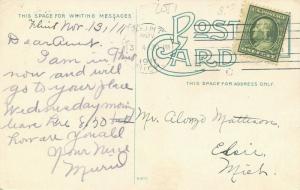 THIS SPACE FOR WRITING MESSAGES
Flint Nov. 13, 1911
Dear Aunt.
I am in Flint
now and will
go to your place
Wednesday morning
leave here 8/30
how are you all
Your Niece
POST
CARD
THIS SPACE FOR ADDRESS ONLY.
Mr. Alonzo Mattison.
Elsie,
Mich.